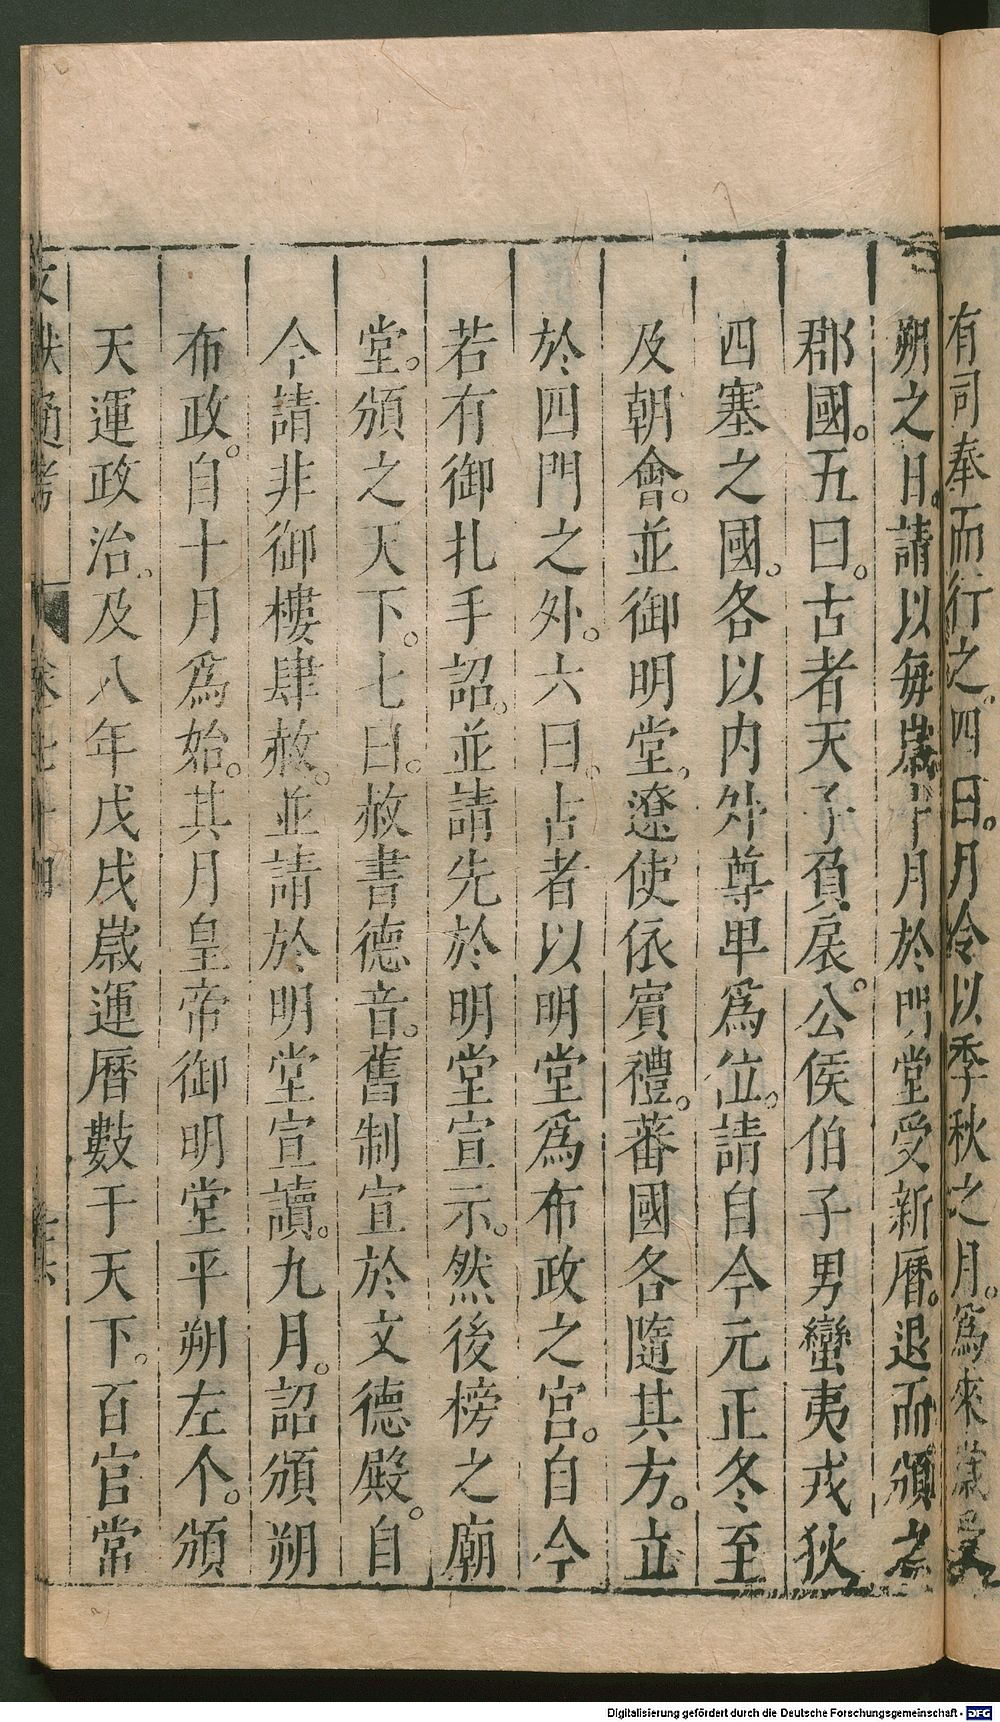 有司奉而行之。四曰。月令以季秋之月。爲來歲受
朔之日。請以每歲十月於明堂受新曆。退而頒之
郡國。五曰。古者天子負扆。公侯伯子男蠻夷戎狄
四塞之國。各以内外尊卑爲位。請自今元正冬至
及朝會。並御明堂。遼使依賓禮。蕃國各隨其方。立
於四門之外。六曰。古者以明堂爲布政之宮。自今
若有御札手詔。並請先於明堂宣示。然後榜之廟
堂。頒之天下。七曰。赦書德音。舊制宣於文德殿。自
今請非御樓肆赦。並請於明堂宣讀。九月。詔頒朔
布政。自十月爲始。其月皇帝御明堂平朔左个。頒
天運政治。及八年戊戌歲運曆數于天下。百官常
文獻通考 卷七十四
Digitalisierung gefördert durch die Deutsche Forschungsgemeinschaft - DFG